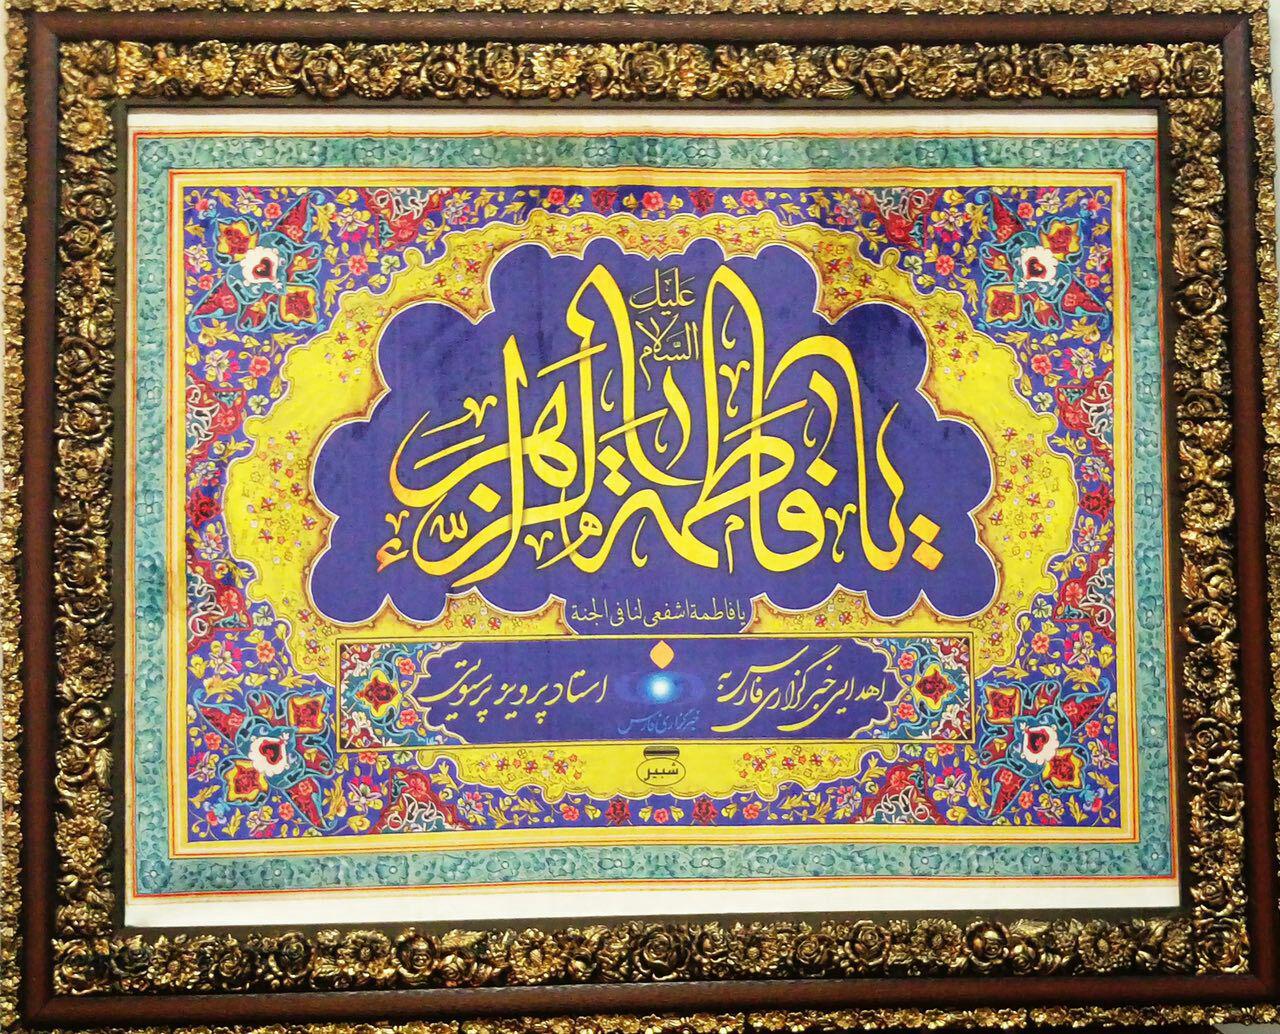 یا فاطمة الزهراء
علیك السَّلام
یا فاطمة اشفعی لنا فی الجنة
اهدایی خبرگزاری فارس به استاد پرویز پرستویی
خبرگزاری فارس
شبیر